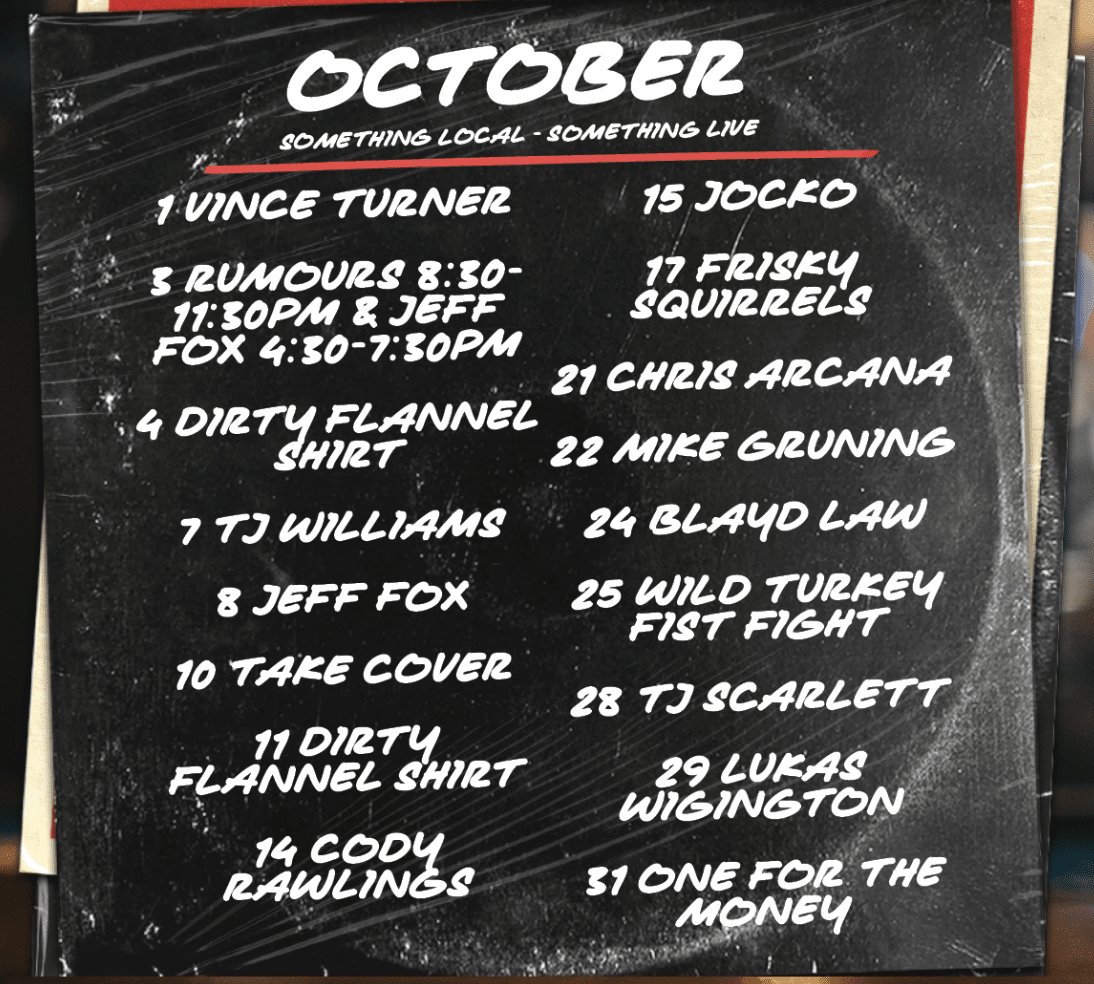 OCTOBER
SOMETHING LOCAL - SOMETHING LIVE
1 VINCE TURNER
3 RUMOURS 8:30-
11:30PM & JEFF
FOX 4:30-7:30PM
4 DIRTY FLANNEL
SHIRT
7 TJ WILLIAMS
8 JEFF FOX
10 TAKE COVER
11 DIRTY
FLANNEL SHIRT
14 CODY
RAWLINGS
15 JOCKO
17 FRISKY
SQUIRRELS
21 CHRIS ARCANA
22 MIKE GRUNING
24 BLAYD LAW
25 WILD TURKEY
FIST FIGHT
28 TJ SCARLETT
29 LUKAS
WIGINGTON
31 ONE FOR THE
MONEY